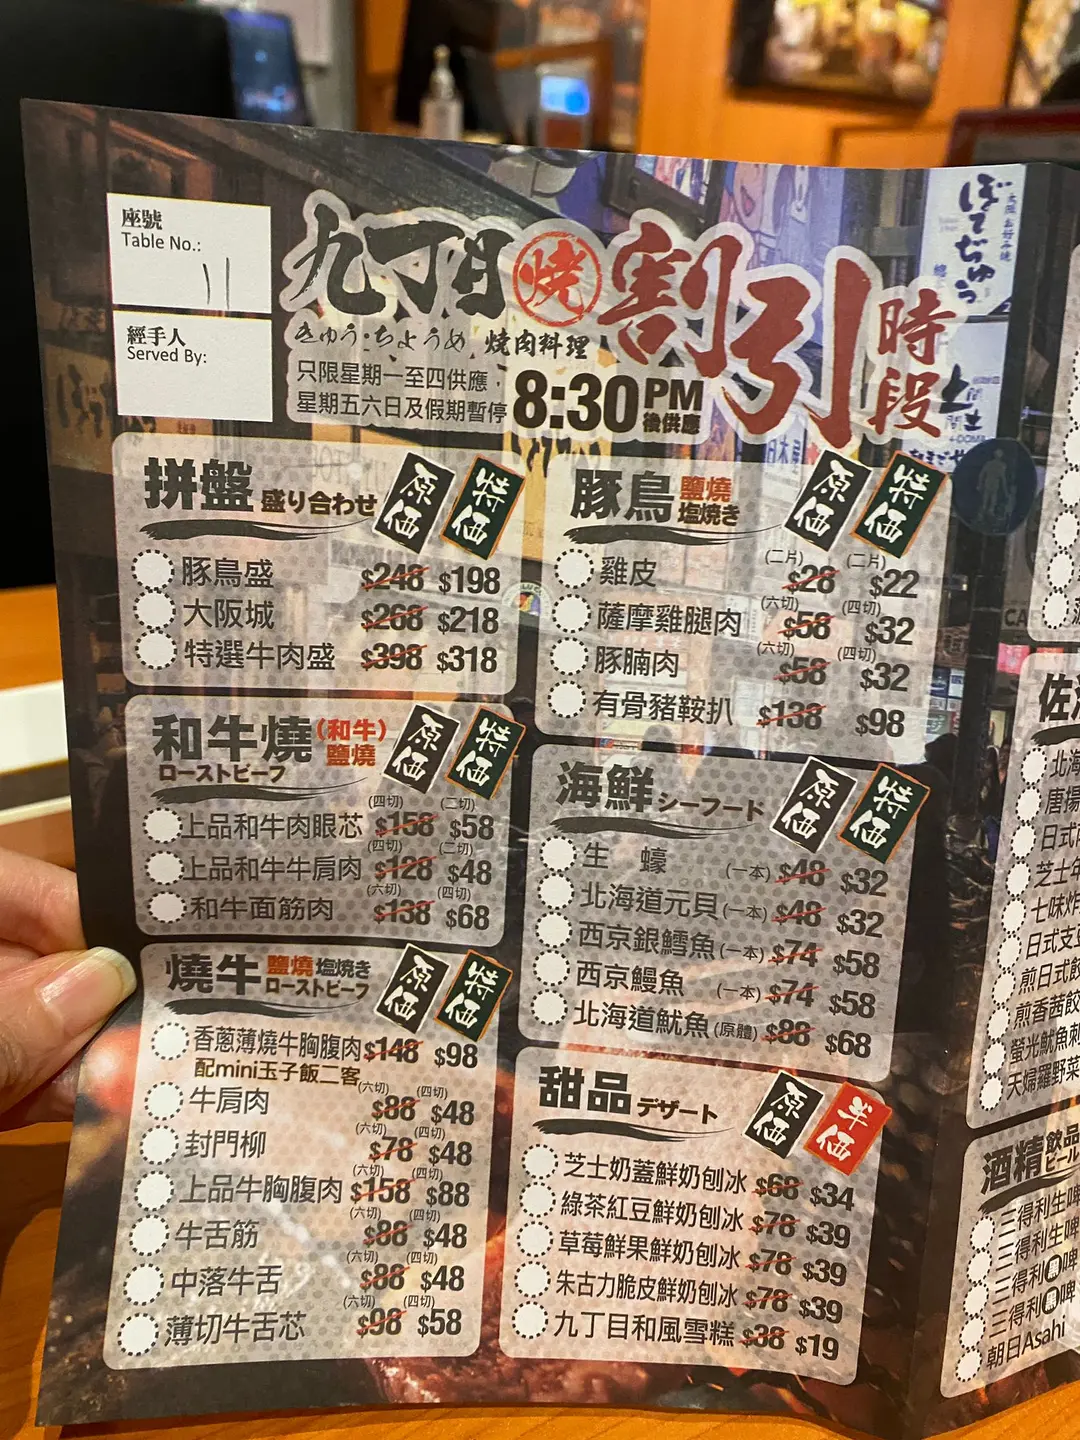 座號
Table No.:
11
經手人
Served By:
九丁目 焼 割引 時段
きゅう·ちょうめ 焼肉料理
只限星期一至四供應，
星期五六日及假期暫停
8:30 PM 後供應
ぼてぢゅう
拼盤 盛り合わせ 原価 特価
豚鳥盛 $248 $198
大阪城 $268 $218
特選牛肉盛 $398 $318
和牛燒 (和牛) 鹽燒 原価 特価
ローストビーフ
(四切) (二切)
上品和牛肉眼芯 $158 $58
(四切) (二切)
上品和牛牛肩肉 $128 $48
(六切) (四切)
和牛面筋肉 $138 $68
燒牛 鹽燒 塩焼き 原価 特価
ローストビーフ
香蔥薄燒牛胸腹肉 $148 $98
配mini玉子飯二客
(六切) (四切)
牛肩肉 $88 $48
(六切) (四切)
封門柳 $78 $48
(六切) (四切)
上品牛胸腹肉 $158 $88
(六切) (四切)
牛舌筋 $88 $48
(六切) (四切)
中落牛舌 $88 $48
(六切) (四切)
薄切牛舌芯 $98 $58
豚鳥 鹽燒 塩焼き 原価 特価
(二片) (二片)
雞皮 $28 $22
(六切) (四切)
薩摩雞腿肉 $58 $32
(六切) (四切)
豚腩肉 $58 $32
有骨豬鞍扒 $138 $98
海鮮 シーフード 原価 特価
生 蠔 (一本) $48 $32
北海道元貝 (一本) $48 $32
西京銀鱈魚 (一本) $74 $58
西京鰻魚 (一本) $74 $58
北海道魷魚 (原體) $88 $68
甜品 デザート 原価 半価
芝士奶蓋鮮奶刨冰 $68 $34
綠茶紅豆鮮奶刨冰 $78 $39
草莓鮮果鮮奶刨冰 $78 $39
朱古力脆皮鮮奶刨冰 $78 $39
九丁目和風雪糕 $38 $19
北海
唐揚
日式
芝士年
七味炸
日式支
煎日式餃
煎香茜餃
螢光魷魚刺
天婦羅野菜
酒精 飲品
ビール
三得利生啤
三得利生啤
三得利 啤
三得利 啤
朝日Asahi